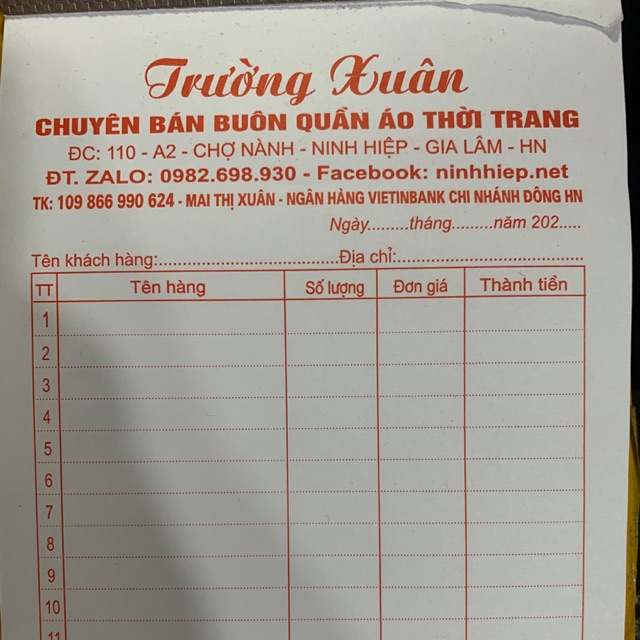 Trường Xuân
CHUYÊN BÁN BUÔN QUẦN ÁO THỜI TRANG
ĐC: 110 - A2 - CHỢ NÀNH - NINH HIỆP - GIA LÂM - HN
ĐT. ZALO: 0982.698.930 - Facebook: ninhhiep.net
TK: 109 866 990 624 - MAI THỊ XUÂN - NGÂN HÀNG VIETINBANK CHI NHÁNH ĐÔNG HN
Ngày.........tháng.........năm 202.....
Tên khách hàng:..................................Địa chỉ:..................................
TT Tên hàng Số lượng Đơn giá Thành tiền
1
2
3
4
5
6
7
8
9
10
11